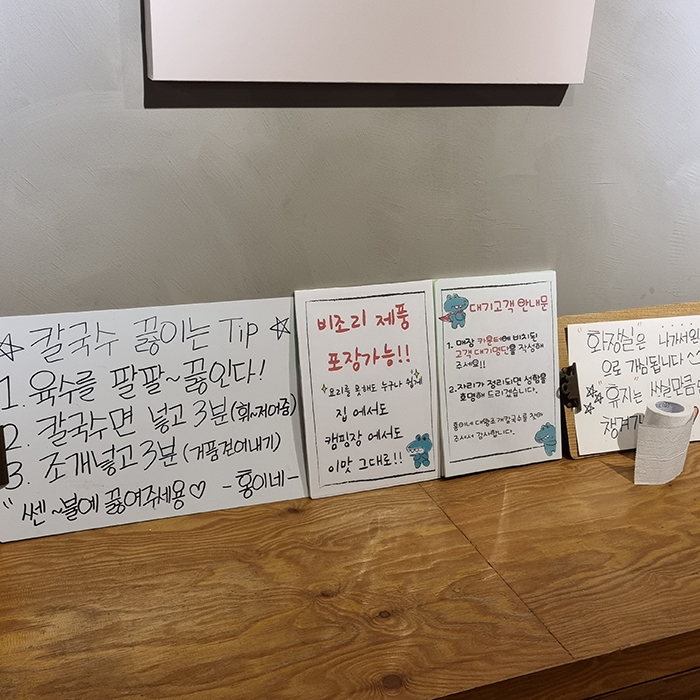 칼국수 끓이는 Tip
1. 육수를 팔팔~끓인다!
2. 칼국수면 넣고 3분(휘~저어줌)
3. 조개넣고 3분(거품걷어내기)
"쎈~불에 끓여주세용♡ -홍이네-
비조리 제품
포장가능!!
요리를 못해도 누구나 쉽게
집 에서도
캠핑장 에서도
이맛 그대로!!
대기고객 안내문
1. 매장 카운터에 비치된
고객 대기명단을 작성해
주세요!!
2. 자리가 정리되면 성함을
호명해 드리겠습니다.
홍이네 대왕조개칼국수를 찾아
주셔서 감사합니다.
"화장실"은 나가셔
으로 가심됩니다
"휴지"는 쓰실만큼
챙겨가